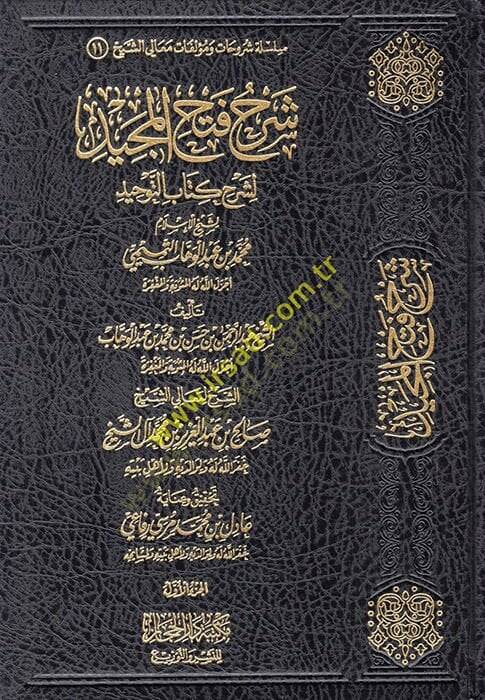 سلسلة شروحات ومؤلفات معالي الشيخ ١١
شرح فتح المجيد
لشرح كتاب التوحيد
لشيخ الإسلام
محمد بن عبد الوهاب التميمي
أجزل الله له المثوبة والمغفرة
تأليف
الشيخ عبد الرحمن بن حسن بن محمد بن عبد الوهاب
أجزل الله له المثوبة والمغفرة
الشرح لمعالي الشيخ
صالح بن عبد العزيز بن محمد آل الشيخ
غفر الله له ولوالديه ولأهل بيته
تحقيق وعناية
عادل بن محمد مرسي رفاعي
غفر الله له ولوالديه ولأهل بيته ولمشايخه
الجزء الأول
مكتبة دار الحجاز
للنشر والتوزيع
شرح فتح المجيد